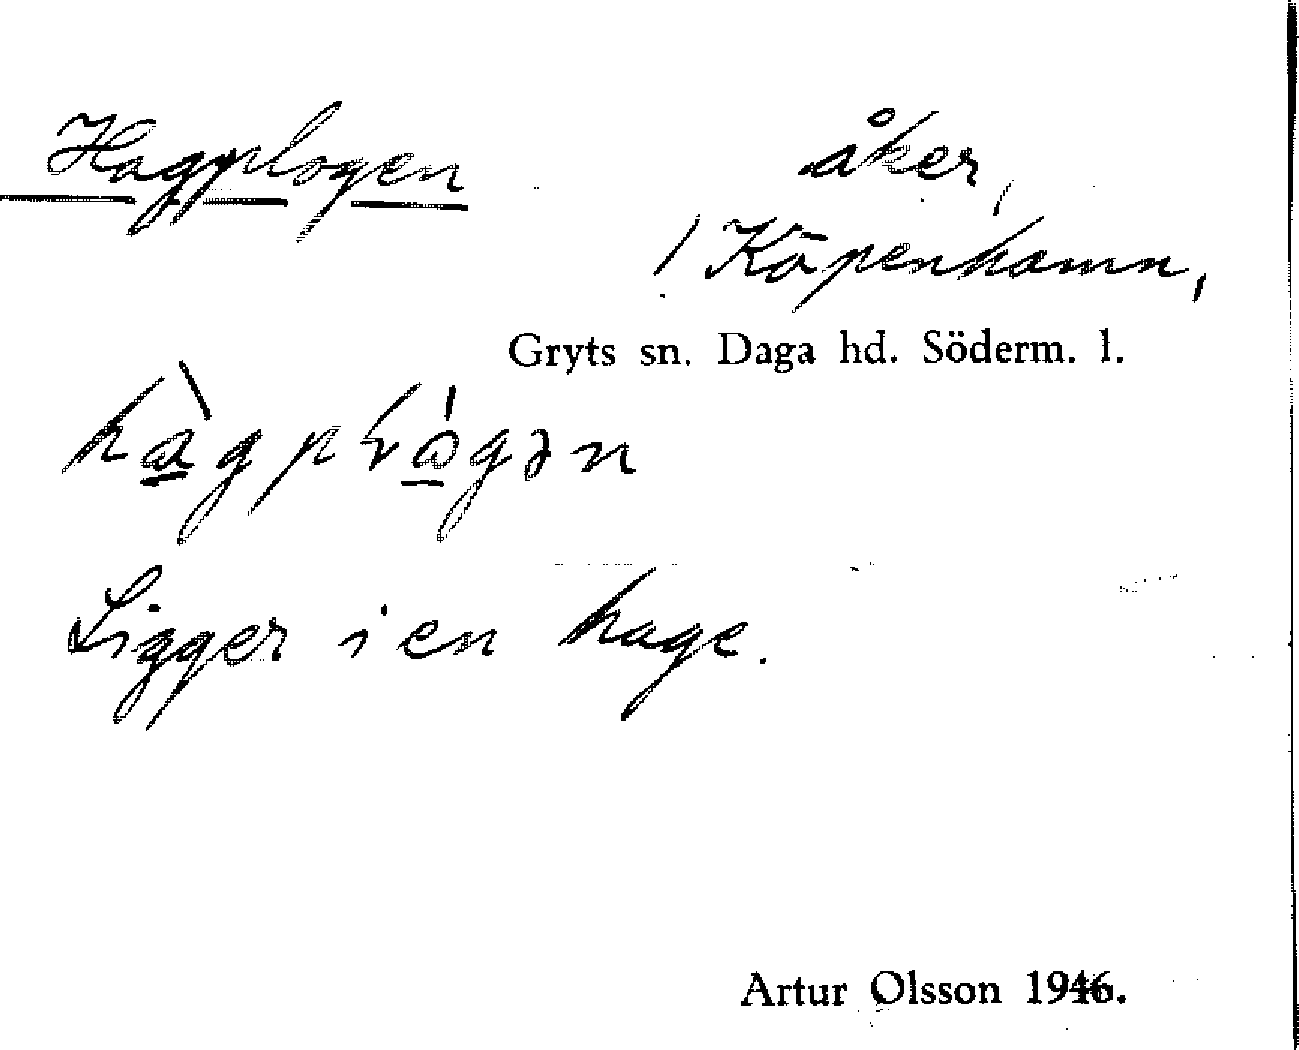 Hagplogen åker,
/ Köpenhamn,
Gryts sn. Daga hd. Söderm. l.
hа̀gpɫógən
Ligger i en hage.
Artur Olsson 1946.